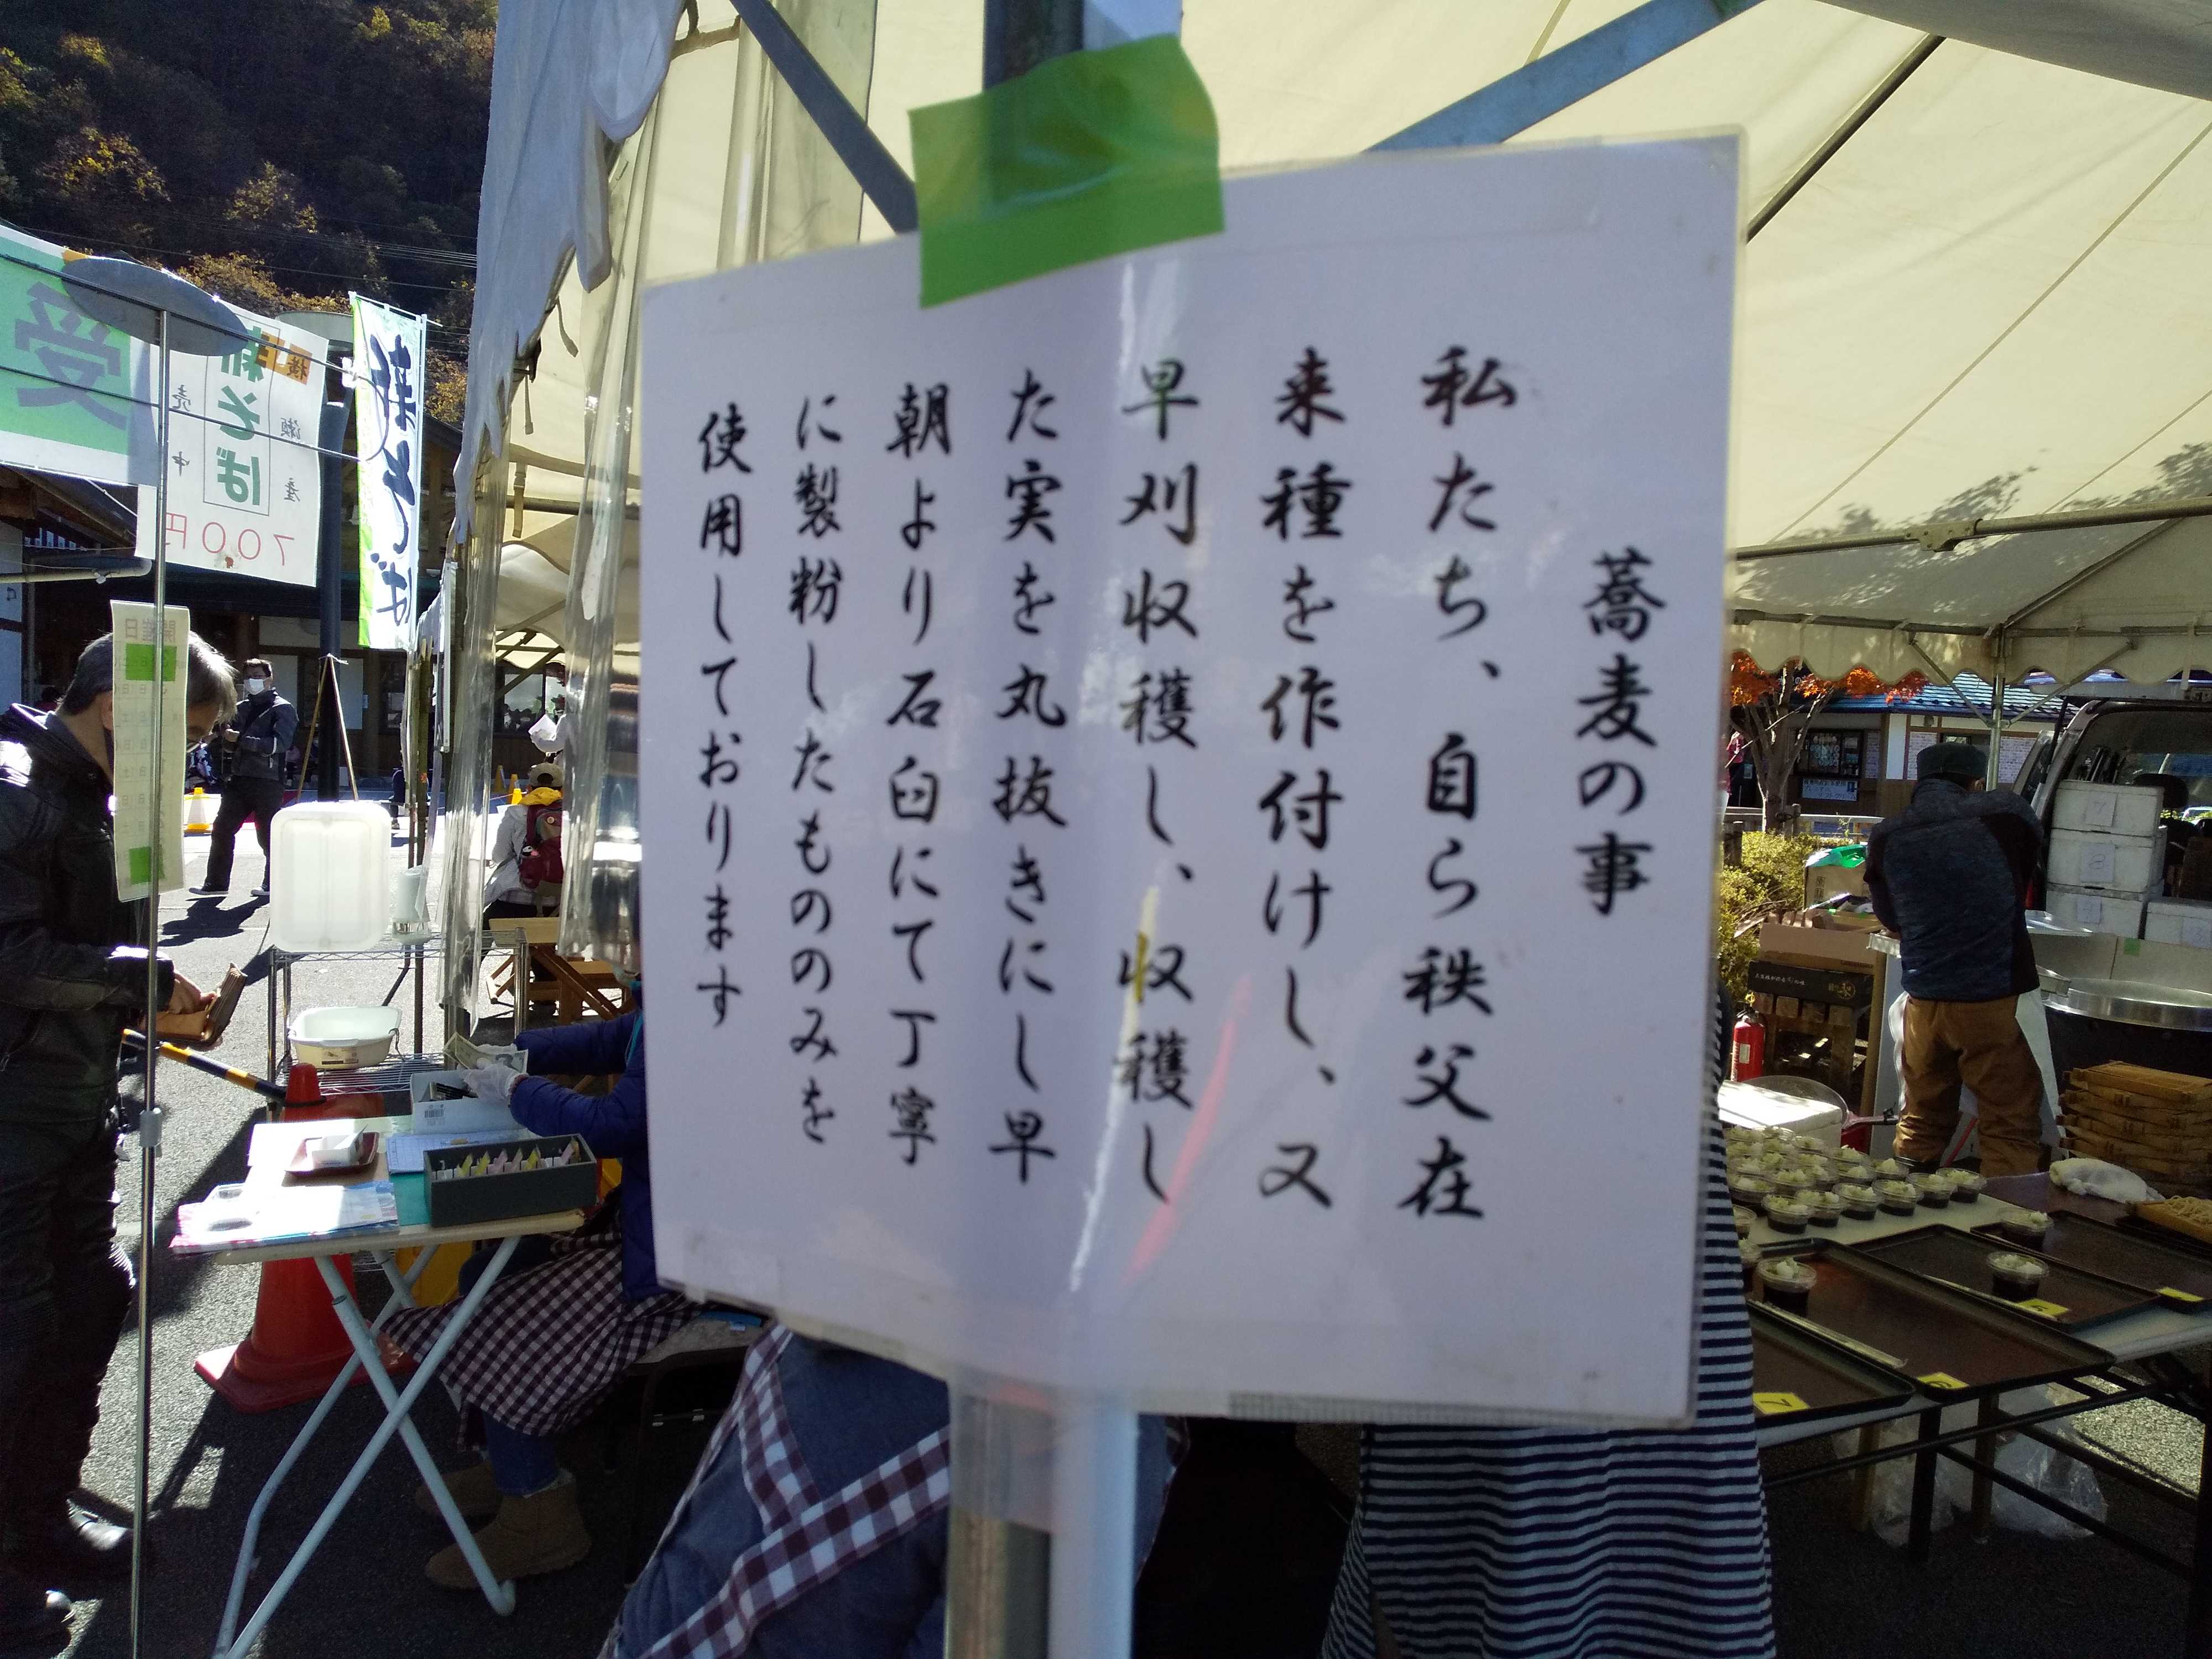 蕎麦の事
私たち、自ら秩父在
来種を作付けし、又
早刈収穫し、収穫し
た実を丸抜きにし早
朝より石臼にて丁寧
に製粉したもののみを
使用しております
新そば
新そば
700円
売
中
産
受
開催日
7
6
5